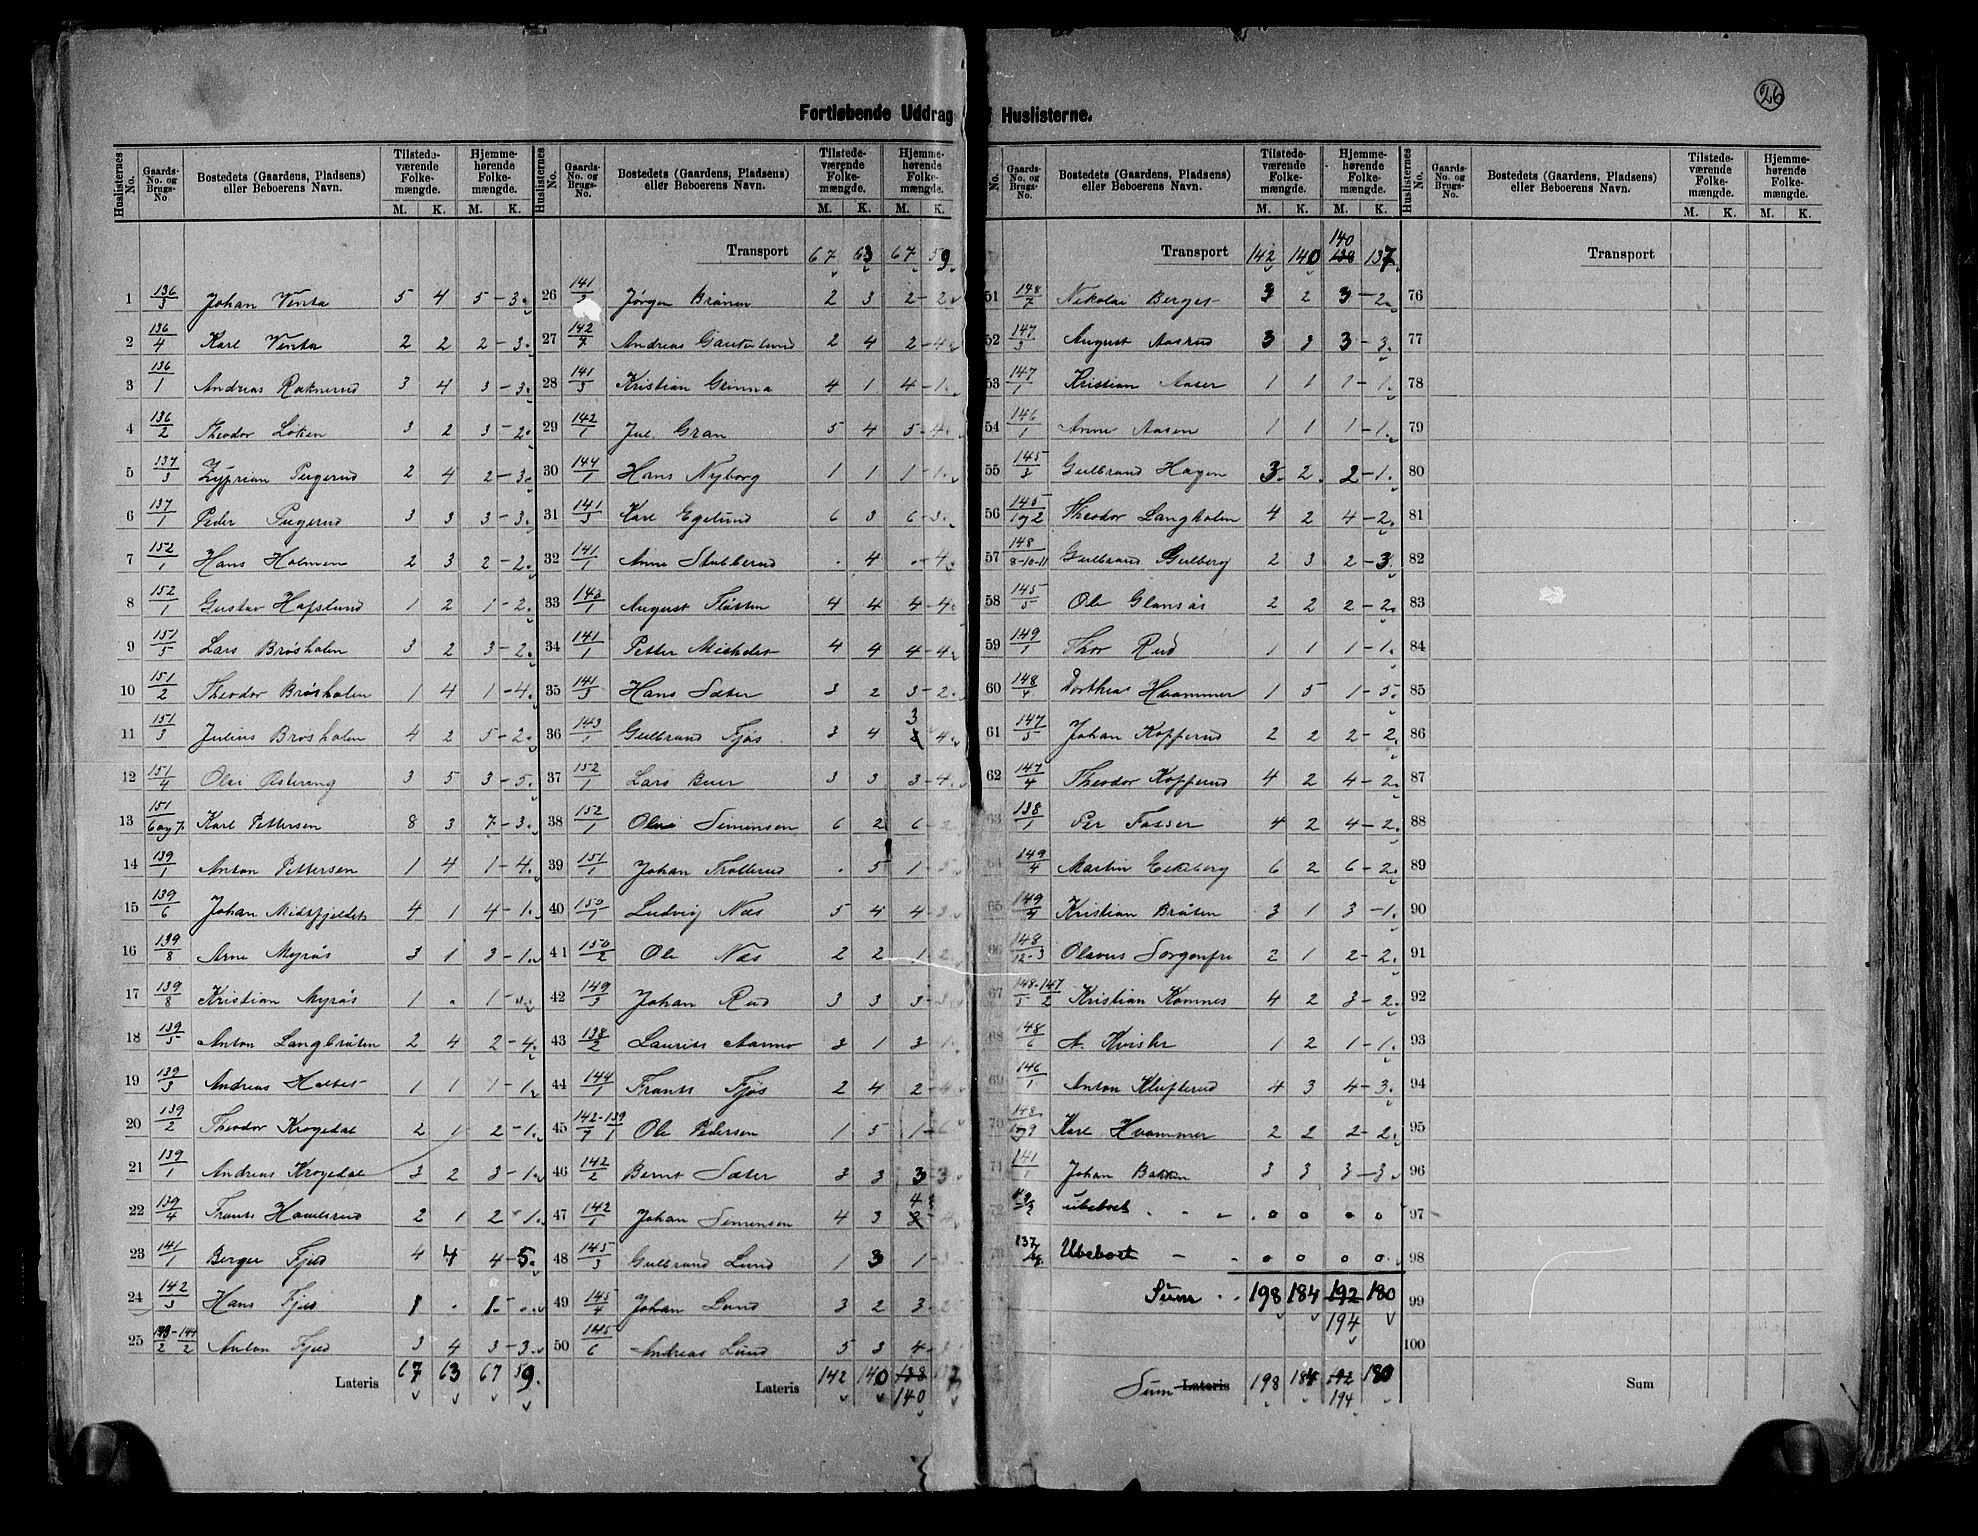 26
Fortløbende Uddrag Huslisterne.
Huslisternes No. Gaards-No. og Brugs-No. Bostedets (Gaardens, Pladsens) eller Beboerens Navn. Tilstedeværende Folkemængde. M. K. Hjemmehørende Folkemængde. M. K.
1 136/3 Johan Venta 5 4 5 - 3
2 136/4 Karl Venta 2 2 2 - 3
3 136/1 Andreas Raknerud 3 4 3 - 3
4 136/2 Theodor Løken 3 2 3 - 2
5 137/3 Zyprian Pugerud 2 4 2 - 3
6 137/1 Peder Pugerud 3 3 3 - 3
7 152/1 Hans Holmen 2 3 2 - 2
8 152/1 Gustav Hafslund 1 2 1 - 2
9 151/5 Lars Brøsholen 3 2 3 - 2
10 151/2 Theodor Brøsholen 1 4 1 - 4
11 151/3 Julius Brøsholen 4 2 5 - 2
12 151/4 Olai Østering 3 5 3 - 5
13 151/6 og 7 Karl Pettersen 8 3 7 - 3
14 139/1 Anton Pettersen 1 4 1 - 4
15 139/6 Johan Midtfjeldet 4 1 4 - 1
16 139/8 Arne Myrås 3 1 3 - 1
17 139/8 Kristian Myrås 1 . 1 -
18 139/5 Anton Langbråten 2 4 2 - 4
19 139/3 Andreas 1 1 1 - 1
20 139/2 Theodor Krogedal 2 1 2 - 1
21 139/1 Andreas Krogedal 3 2 3 - 1
22 139/4 Frants 2 1 2 - 1
23 141/1 Berger Fjeld 4 4 4 - 5
24 142/3 Hans Fjeld 1 . 1 - .
25 143/2 - 144/2 Anton Fjeld 3 4 3 - 3
Lateris 67 63 67 59
Transport 67 63 67 59
26 141/2 Jørgen Brånen 2 3 2 - 2
27 142/7 Andreas Gauterlund 2 4 2 - 4
28 141/3 Kristian Grinna 4 1 4 - 1
29 142/1 Jul. Gran 5 4 5 - 4
30 144/1 Hans Nyborg 1 1 1 - 1
31 141/3 Karl Egelund 6 3 6 - 3
32 141/1 Anne Stubberud . 4 . - 4
33 140/1 August Flåtten 4 4 4 - 4
34 141/1 Petter Michelet 4 4 4 - 4
35 141/3 Hans Sæter 3 2 3 - 2
36 143/1 Gulbrand Fjøs 3 4 3 4
37 152/1 Lars Buer 3 3 3 - 4
38 152/1 Olai Simensen 6 2 6 - 2
39 151/1 Johan Trollerud . 5 1 - 5
40 150/1 Ludvig Næs 5 4 4 - 3
41 150/2 Ole Næs 2 2 1 - 2
42 149/3 Johan Rud 3 3 3 - 3
43 138/2 Laurits Aarmo 3 1 3 1
44 144/1 Frants Fjøs 2 4 2 - 4
45 142/7 - 139/1 Ole Pedersen 1 5 1 - 6
46 142/2 Bernt Sæter 3 3 3 - 3
47 142/1 Johan Simensen 4 3 4
48 145/3 Gulbrand Lund 1 3 1 -
49 145/4 Johan Lund 3 2 3 - 2
50 145/6 Andreas Lund 5 3 4 - 3
Lateris 142 140 138 137
140
Transport 142 140 138 137
140
51 148/7 Nikolai Berget 3 2 3 - 2
52 147/3 August Aasrud 3 3 3 - 3
53 147/1 Kristian Aaser 1 1 1 - 1
54 146/1 Anne Aasen 1 1 1 - 1
55 145/3 Gulbrand Hagen 3 2 2 - 1
56 145/1 og 2 Theodor Langholen 4 2 4 - 2
57 148/8-10-11 Gulbrand Gulberg 2 3 2 - 3
58 145/5 Ole Glansås 2 2 2 - 2
59 149/1 Thor Rud 1 1 1 - 1
60 148/4 Dorthea Hvammer 1 5 1 - 5
61 147/5 Johan Kopperud 2 2 2 - 2
62 147/4 Theodor Kopperud 4 2 4 - 2
63 138/1 Per Fosser 4 2 4 - 2
64 149/4 Martin Eckeberg 6 2 6 - 2
65 149/4 Kristian Bråten 3 1 3 - 1
66 148/12-3 Olavus Sorgenfri 2 1 2 - 2
67 148/5 - 147/2 Kristian Komnes 4 2 3 - 2
68 148/6 A. 1 2 1 - 1
69 146/1 Anton Klufterud 4 3 4 - 3
70 148/ Karl Hvammer 2 2 2 - 2
71 141/1 Johan Bakken 3 3 3 - 3
72 ubeboet 0 0 0 0
73 137/ Ubeboet 0 0 0 0
Sum 198 184 192 180
194
Sum Lateris 198 184 192 180
194
Transport
76
77
78
79
80
81
82
83
84
85
86
87
88
89
90
91
92
93
94
95
96
97
98
99
100
Sum